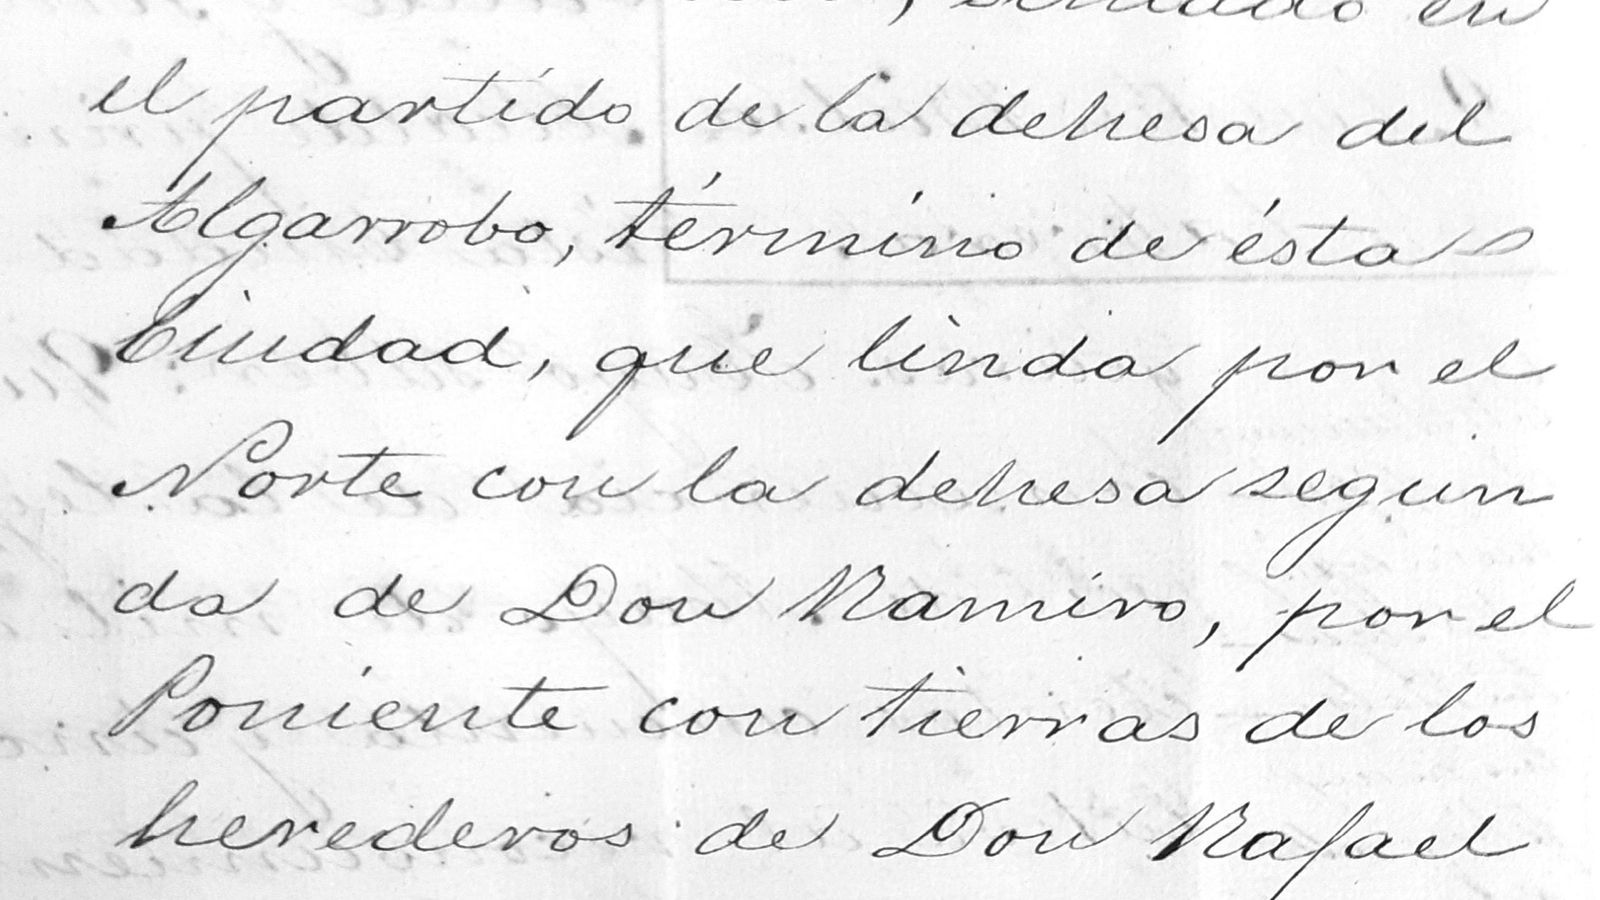 situado en
el partido de la dehesa del
Algarrobo, término de ésta
Ciudad, que linda por el
Norte con la dehesa segun
da de Don Ramiro, por el
Poniente con tierras de los
herederos de Don Rafael